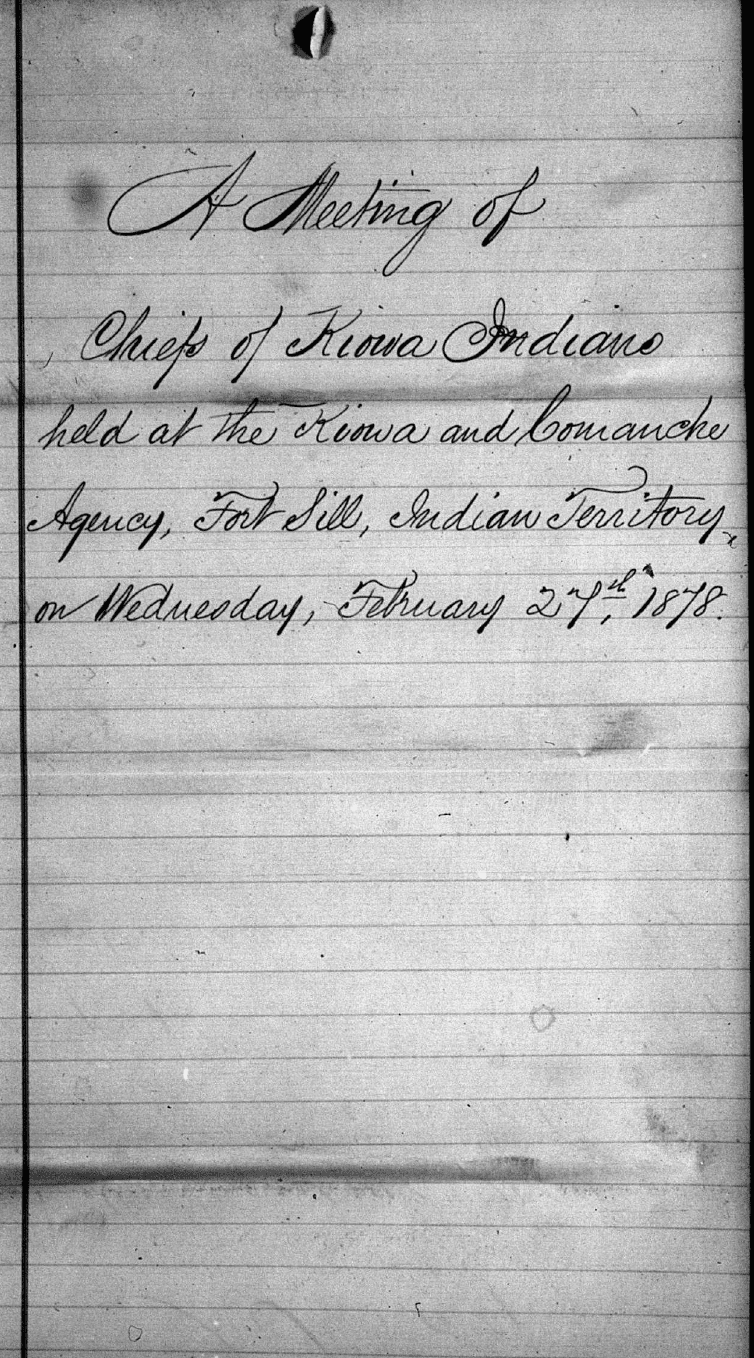 A Meeting of
Chiefs of Kiowa Indians
held at the Kiowa and Comanche
Agency, Fort Sill, Indian Territory,
on Wednesday, February 27th, 1878.